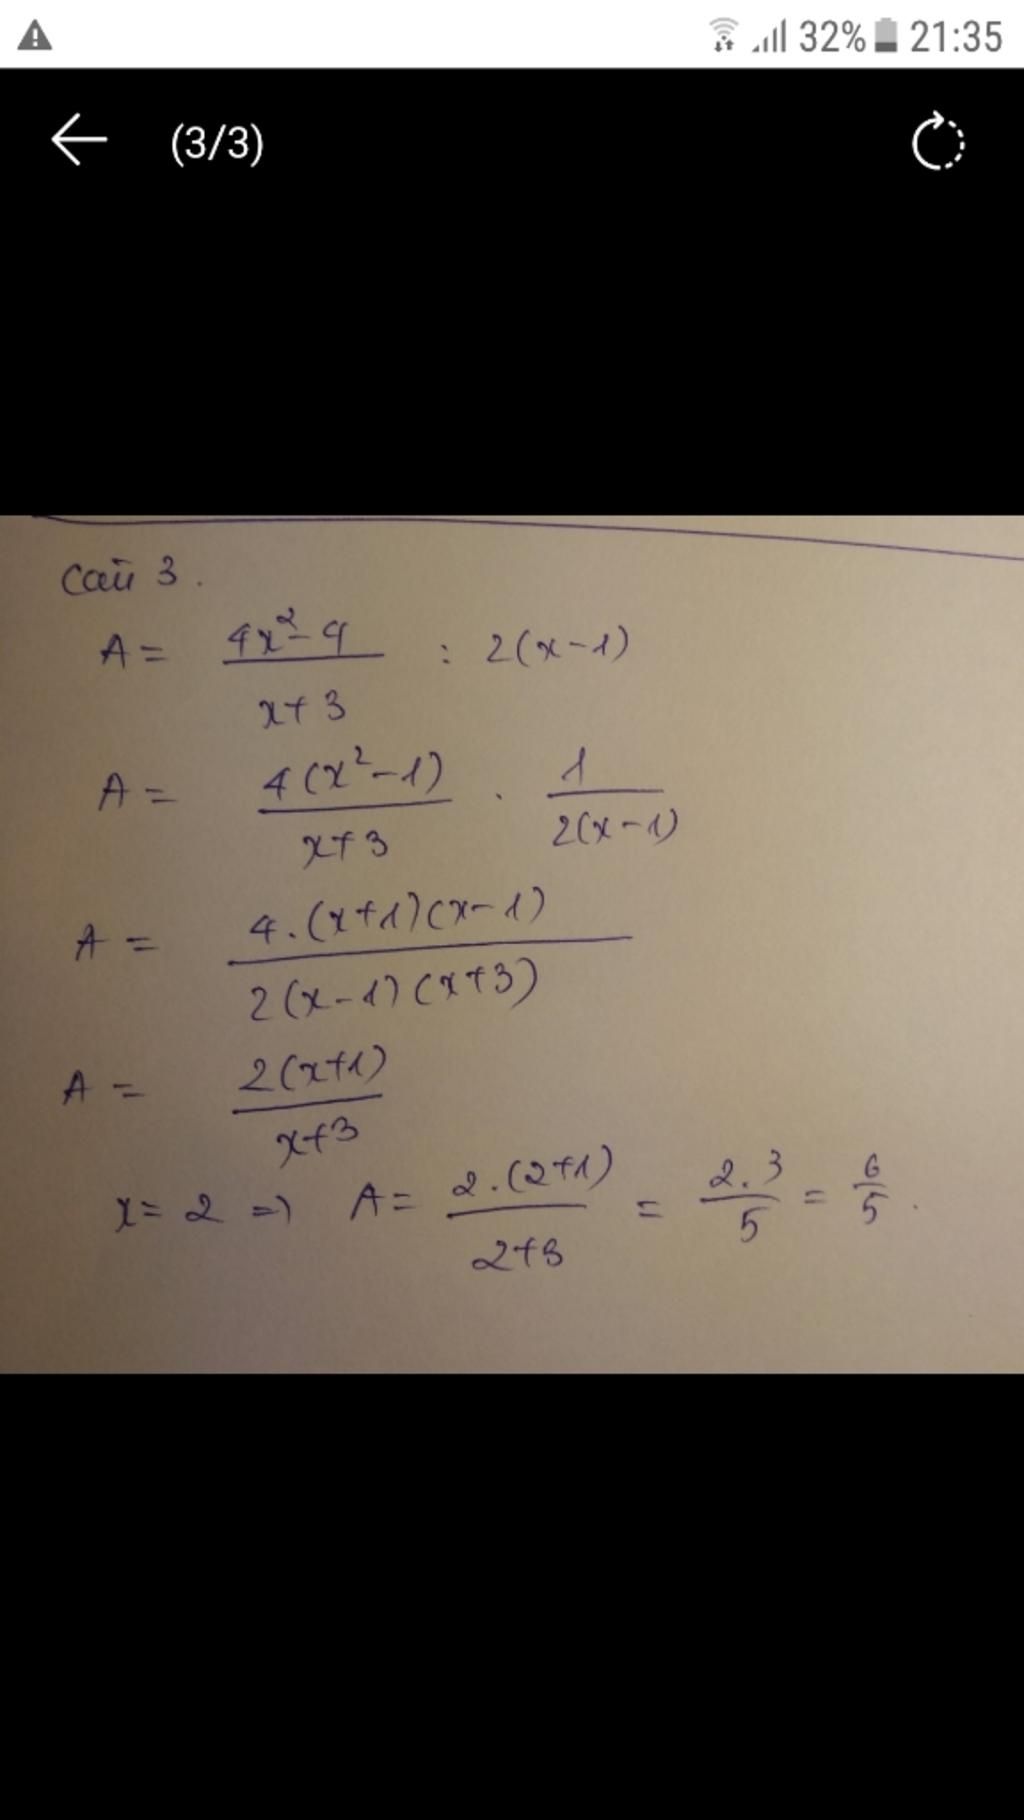 32% 21:35
(3/3)
Câu 3.
A = \frac{4x^2-4}{x+3} : 2(x-1)
A = \frac{4(x^2-1)}{x+3} . \frac{1}{2(x-1)}
A = \frac{4.(x+1)(x-1)}{2(x-1)(x+3)}
A = \frac{2(x+1)}{x+3}
x = 2 => A = \frac{2.(2+1)}{2+3} = \frac{2.3}{5} = \frac{6}{5}.